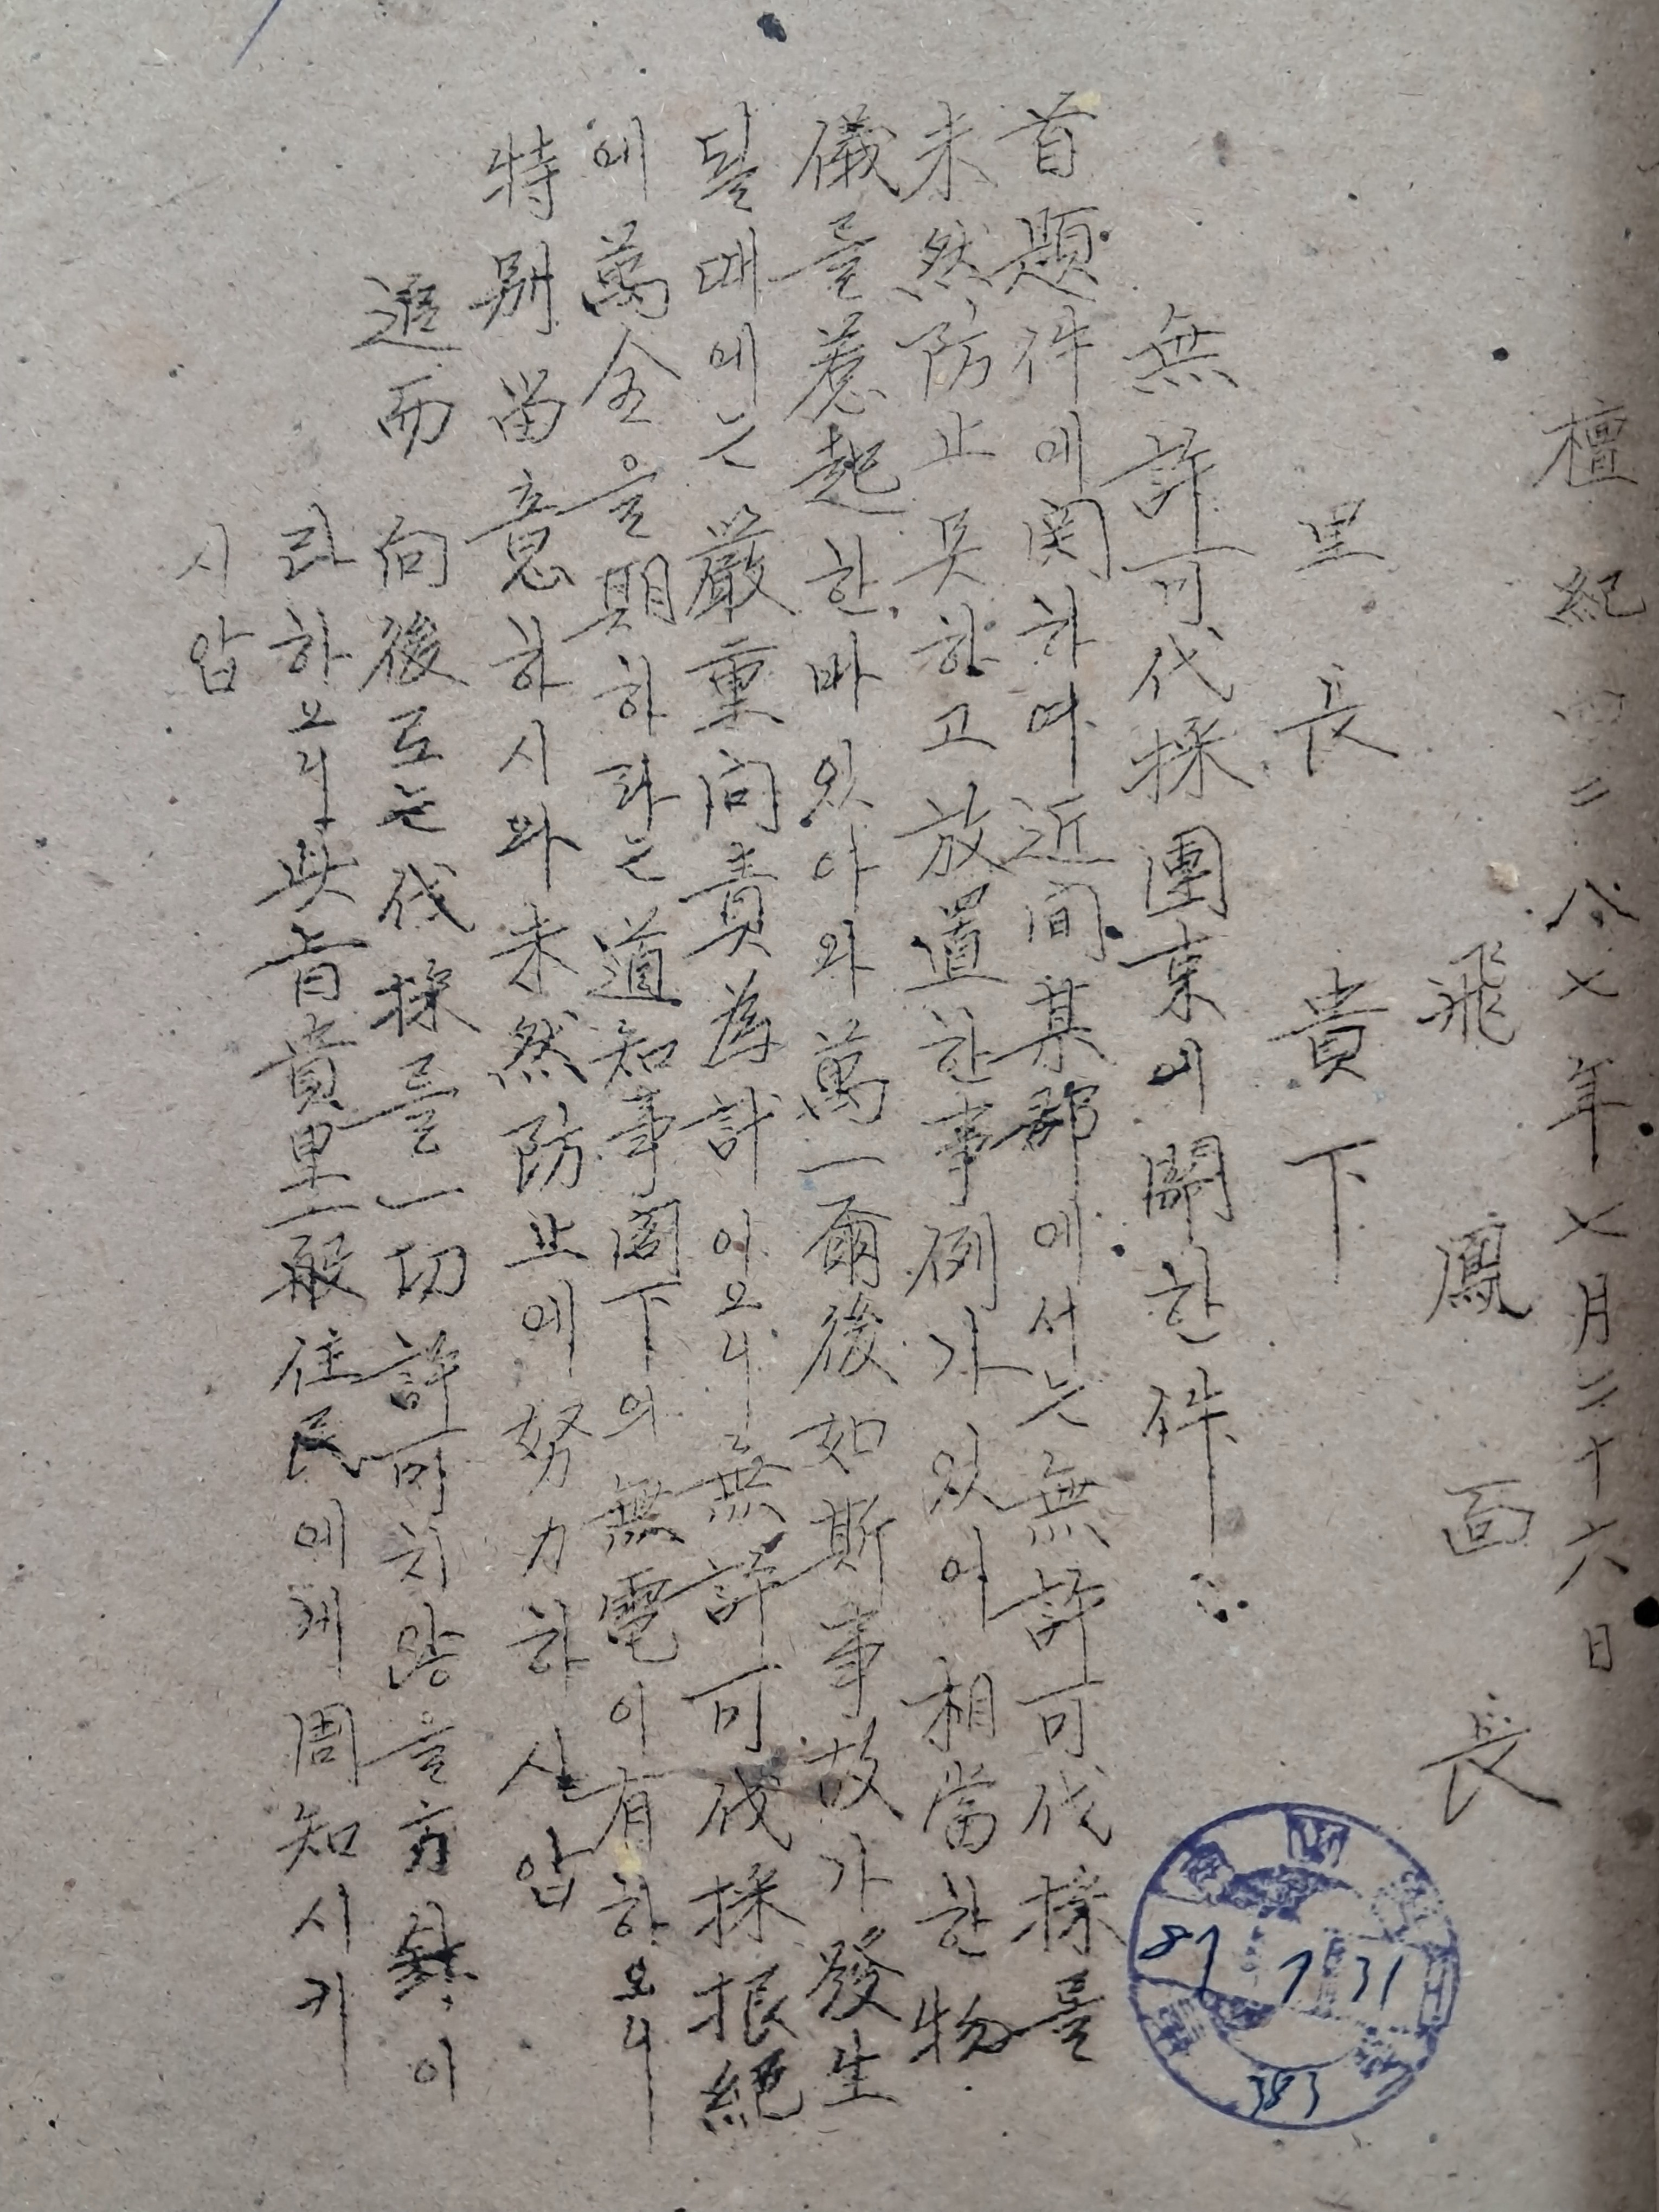 檀紀四二八七年七月二十六日
飛鳳面長
里長 貴下
無許可代採團束에關한件
首題件에関하여近间某郡에서는無許可伐採를
未然防止못하고放置한事例가있어相當한物
儀를惹起한바있아와萬一爾後如斯事故가發生
될때에는嚴重问責爲計이오니無許可伐採根絶
에萬全을期하라는道知事阁下의無電이有하오니
特別留意하시와未然防止에努力하심압
追而 向後로는伐採를一切許可치않을方針이
라하오니此旨貴里一般住民에게周知시키
시압
87 7 31
383